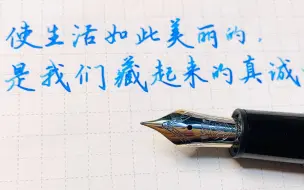 使生活如此美丽的，
是我们藏起来的真诚